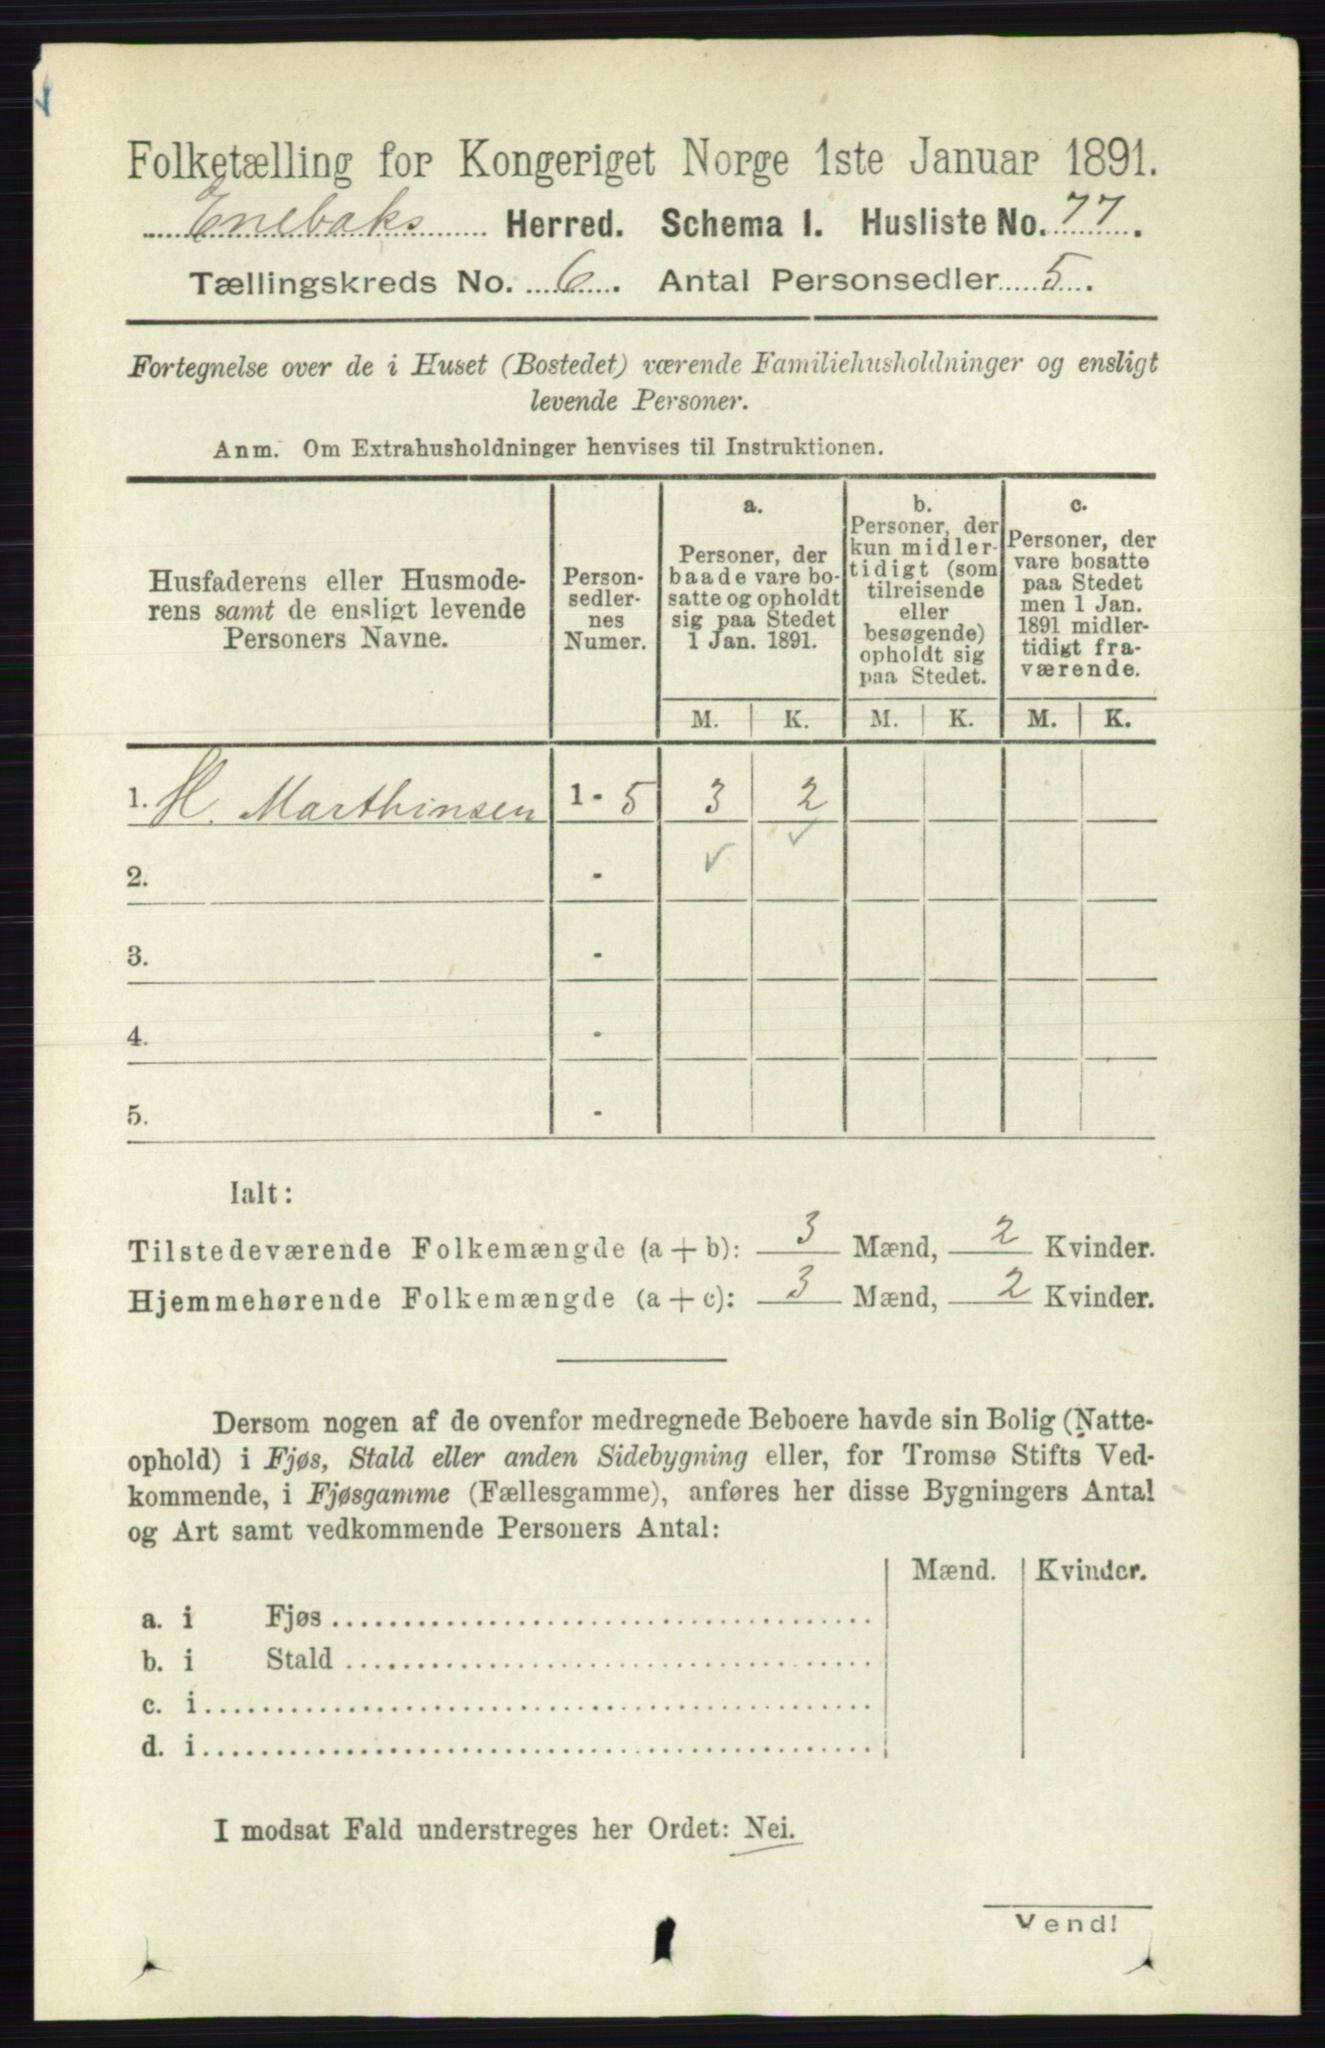 Folketælling for Kongeriget Norge 1ste Januar 1891.
Enebaks Herred. Schema I. Husliste No. 77.
Tællingskreds No. 6. Antal Personsedler 5.
Fortegnelse over de i Huset (Bostedet) værende Familiehusholdninger og ensligt
levende Personer.
Anm. Om Extrahusholdninger henvises til Instruktionen.
Husfaderens eller Husmode-
rens samt de ensligt levende
Personers Navne.
Person-
sedler-
nes
Numer.
a.
Personer, der
baade vare bo-
satte og opholdt
sig paa Stedet
1 Jan. 1891.
b.
Personer, der
kun midler-
tidigt (som
tilreisende
eller
besøgende)
opholdt sig
paa Stedet.
c.
Personer, der
vare bosatte
paa Stedet
men 1 Jan.
1891 midler-
tidigt fra-
værende.
M. K. M. K. M. K.
1. H. Marthinsen 1 - 5 3 2
2. - ✓ ✓
3. -
4. -
5. -
Ialt:
Tilstedeværende Folkemængde (a + b): 3 Mænd, 2 Kvinder.
Hjemmehørende Folkemængde (a + c): 3 Mænd, 2 Kvinder.
Dersom nogen af de ovenfor medregnede Beboere havde sin Bolig (Natte-
ophold) i Fjøs, Stald eller anden Sidebygning eller, for Tromsø Stifts Ved-
kommende, i Fjøsgamme (Fællesgamme), anføres her disse Bygningers Antal
og Art samt vedkommende Personers Antal:
Mænd. Kvinder.
a. i Fjøs
b. i Stald
c. i
d. i
I modsat Fald understreges her Ordet: Nei.
Vend!